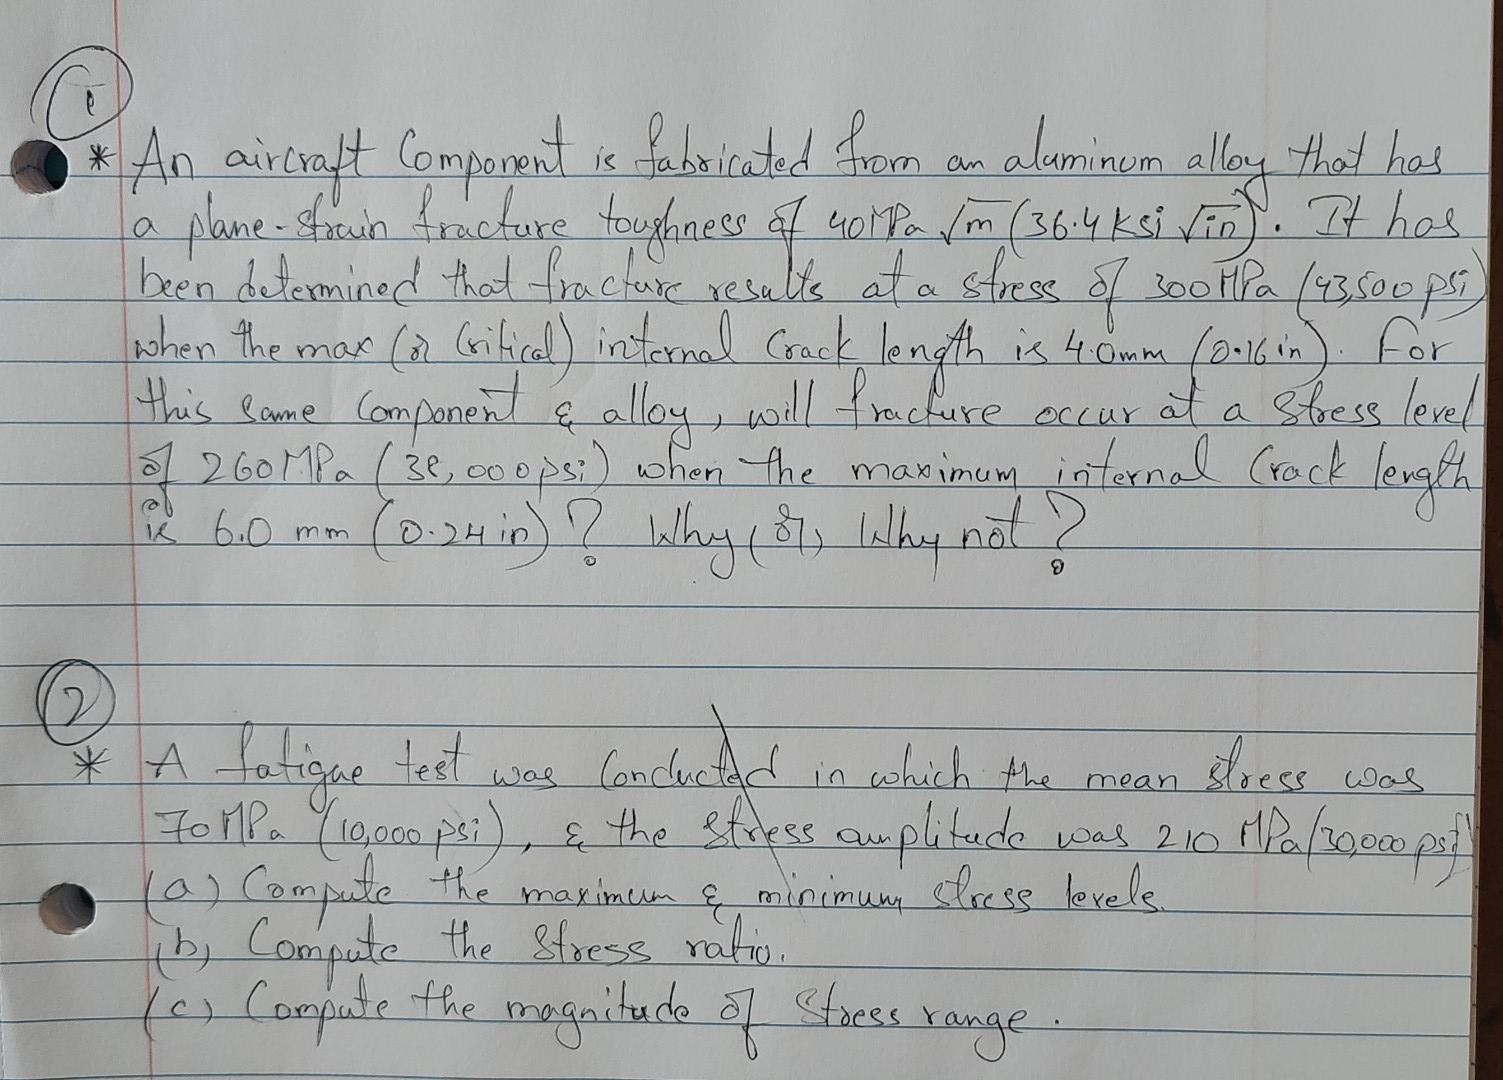 1
* An aircraft Component is fabricated from an aluminum alloy that has
a plane-strain fracture toughness of 40 MPa √m (36.4 ksi √in). It has
been determined that fracture results at a stress of 300 MPa (43,500 psi)
when the max (or Critical) internal Crack length is 4.0mm (0.16 in). For
this same Component & alloy, will fracture occur at a stress level
of 260 MPa (38,000 psi) when the maximum internal Crack length
is 6.0 mm (0.24 in)? Why (or) Why not?
2
* A fatigue test was Conducted in which the mean stress was
70 MPa (10,000 psi), & the stress amplitude was 210 MPa (30,000 psi)
(a) Compute the maximum & minimum stress levels.
(b) Compute the Stress ratio.
(c) Compute the magnitude of Stress range.